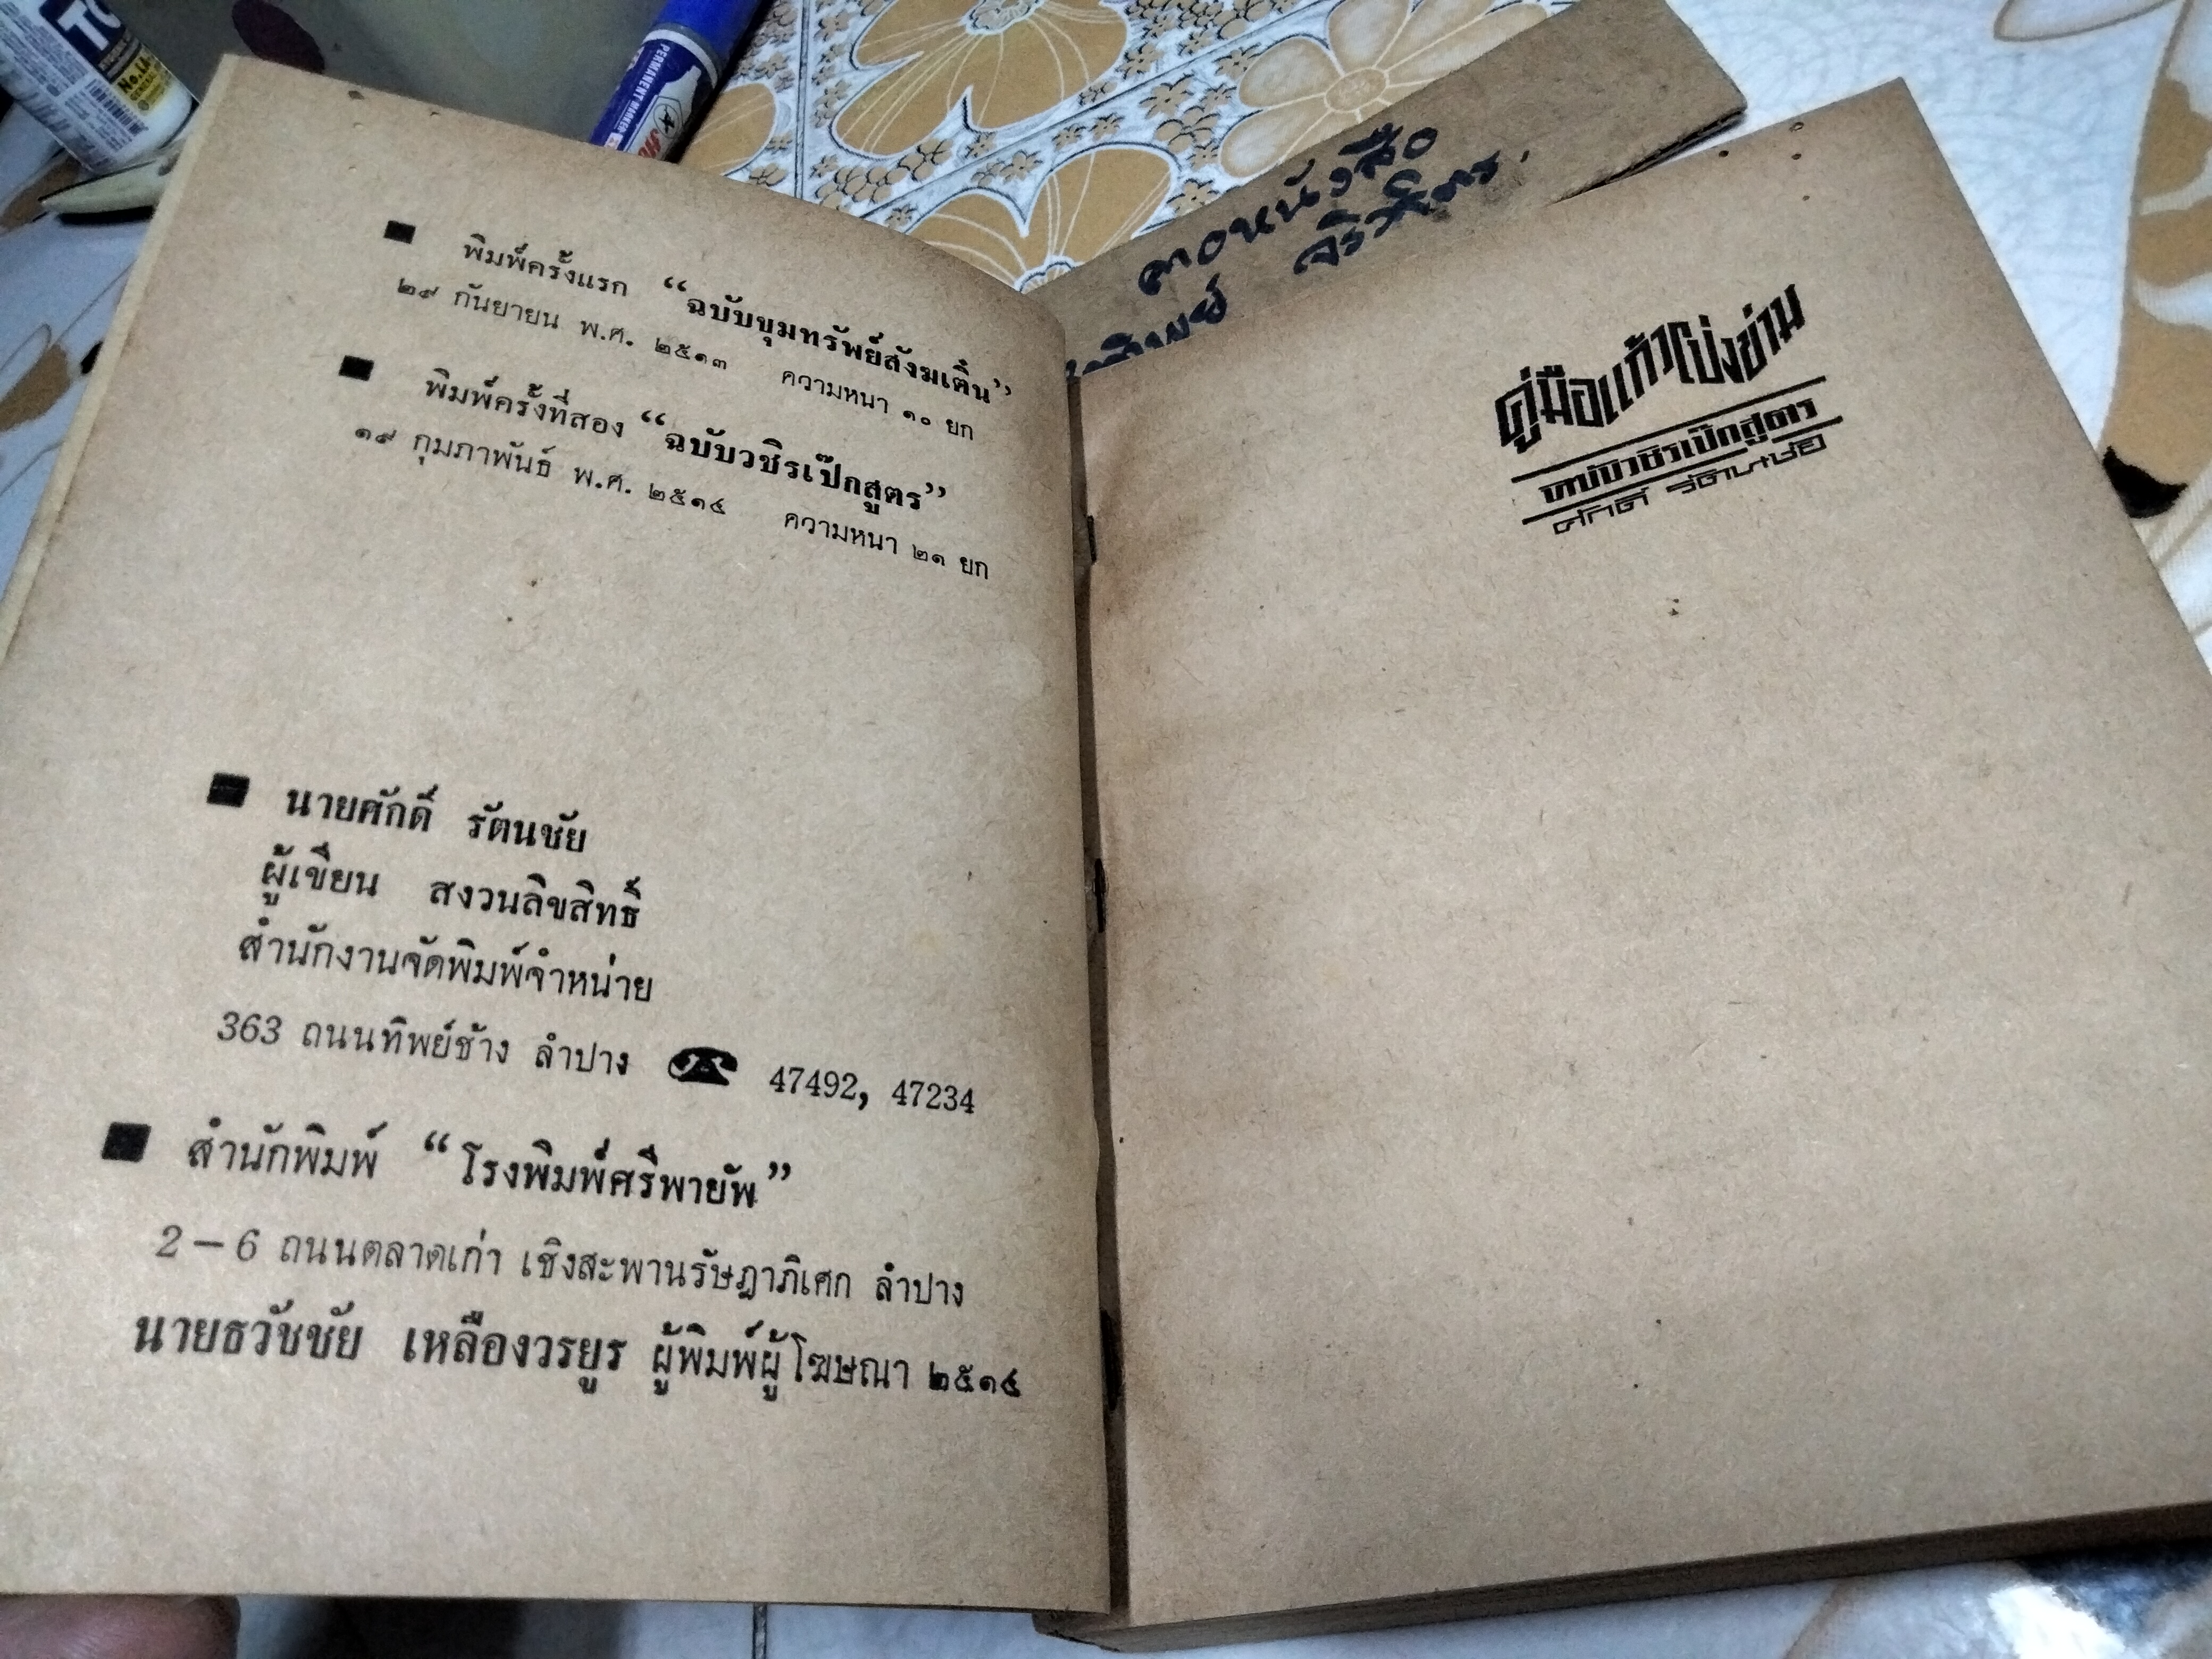 ■ พิมพ์ครั้งแรก “ฉบับขุมทรัพย์สังฆเติ๋น”
๒๙ กันยายน พ.ศ. ๒๕๑๓ ความหนา ๑๐ ยก
■ พิมพ์ครั้งที่สอง “ฉบับวชิรเป๊กสูตร”
๑๙ กุมภาพันธ์ พ.ศ. ๒๕๑๔ ความหนา ๒๑ ยก
■ นายศักดิ์ รัตนชัย
ผู้เขียน สงวนลิขสิทธิ์
สำนักงานจัดพิมพ์จำหน่าย
363 ถนนทิพย์ช้าง ลำปาง ☎ 47492, 47234
■ สำนักพิมพ์ “โรงพิมพ์ศรีพายัพ”
2 – 6 ถนนตลาดเก่า เชิงสะพานรัษฎาภิเศก ลำปาง
นายธวัชชัย เหลืองวรยูร ผู้พิมพ์ผู้โฆษณา ๒๕๑๔
คู่มือแก้วโป่งข่าม
ฉบับวชิรเป๊กสูตร
ศักดิ์ รัตนชัย
PERMANENT MARKER
หนังสือ